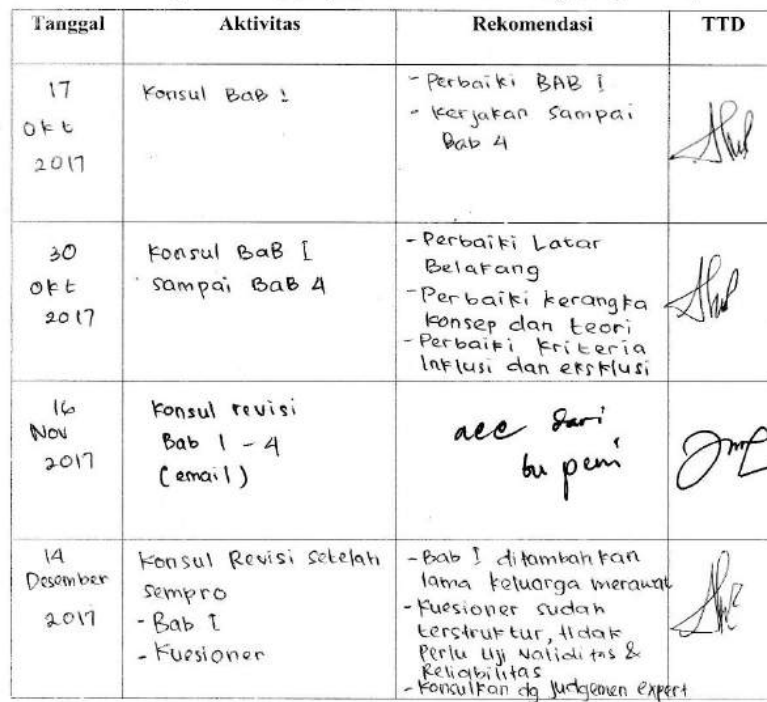 Tanggal Aktivitas Rekomendasi TTD
17
Okt
2017
Konsul BaB I
- Perbaiki BAB I
- Kerjakan sampai
Bab 4
30
Okt
2017
Konsul BaB I
sampai BaB 4
- Perbaiki Latar
Belakang
- Perbaiki kerangka
konsep dan teori
- Perbaiki kriteria
Inklusi dan eksklusi
16
Nov
2017
Konsul revisi
Bab 1 - 4
(email)
acc dari
bu peni
14
Desember
2017
Konsul Revisi setelah
sempro
- Bab I
- Kuesioner
- Bab I ditambahkan
lama keluarga merawat
- Kuesioner sudah
terstruktur, tidak
Perlu Uji Validitas &
Reliabilitas
- Konsulkan dg judgemen expert